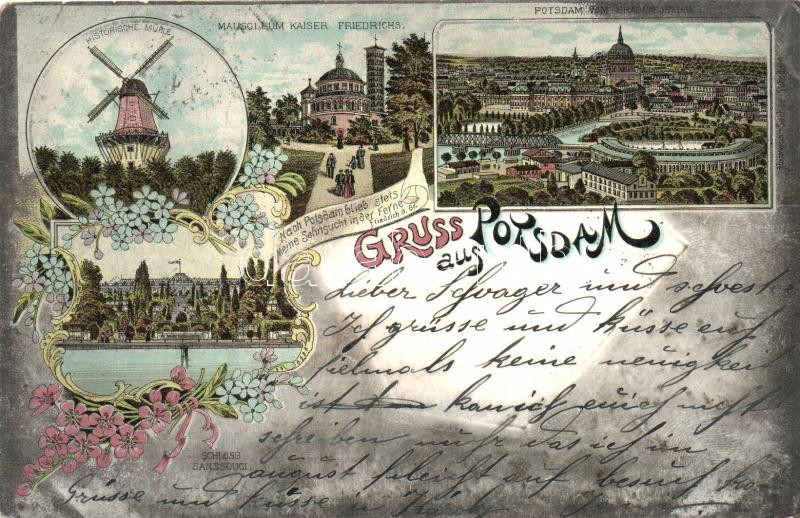 HISTORISCHE MÜHLE
MAUSOLEUM KAISER FRIEDRICHS.
POTSDAM VOM
Nach Potsdam blieb stets
Meine Sehnsucht in der Ferne
Friedrich d. Gr.
GRUSS aus POTSDAM
SCHLOSS
SANSSOUCI.
Lieber Schvager und schvester
Ich grüsse und küsse euch
fielmals keine neuigkeit
ist kan ich euich nicht
schreiben nuhr das ich im
august fleicht auf besuch
Grüsse und küsse